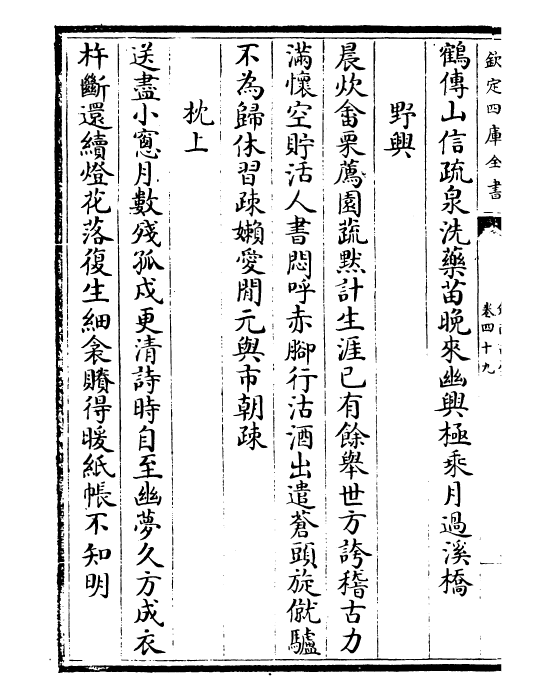 欽定四庫全書
卷四十九
鶴傳山信疏泉洗藥苗晩來幽興極乘月過溪橋
野興
晨炊畬粟薦園蔬黙計生涯已有餘舉世方誇稽古力
滿懷空貯活人書悶呼赤腳行沽酒出遣蒼頭旋僦驢
不為歸休習疎嬾愛閒元與市朝疎
枕上
送盡小窻月數殘孤戍更清詩時自至幽夢久方成衣
杵斷還續燈花落復生細衾賸得暖紙帳不知明